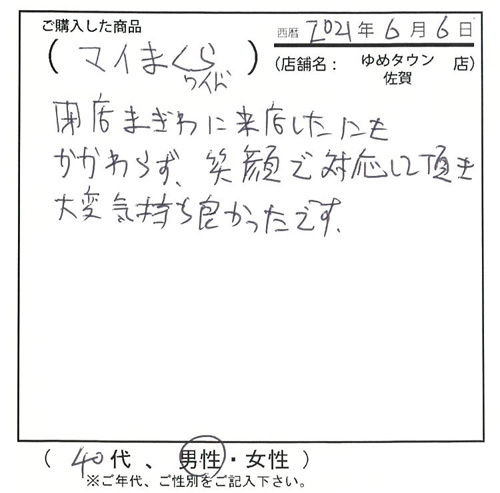 ご購入した商品
西暦 2021年 6月 6日
( マイまくら )
ワイド
(店舗名: ゆめタウン 店)
佐賀
閉店まぎわに来店したにも
かかわらず、笑顔で対応して頂き
大変気持ち良かったです。
( 40代 、 男性・女性 )
※ご年代、ご性別をご記入下さい。